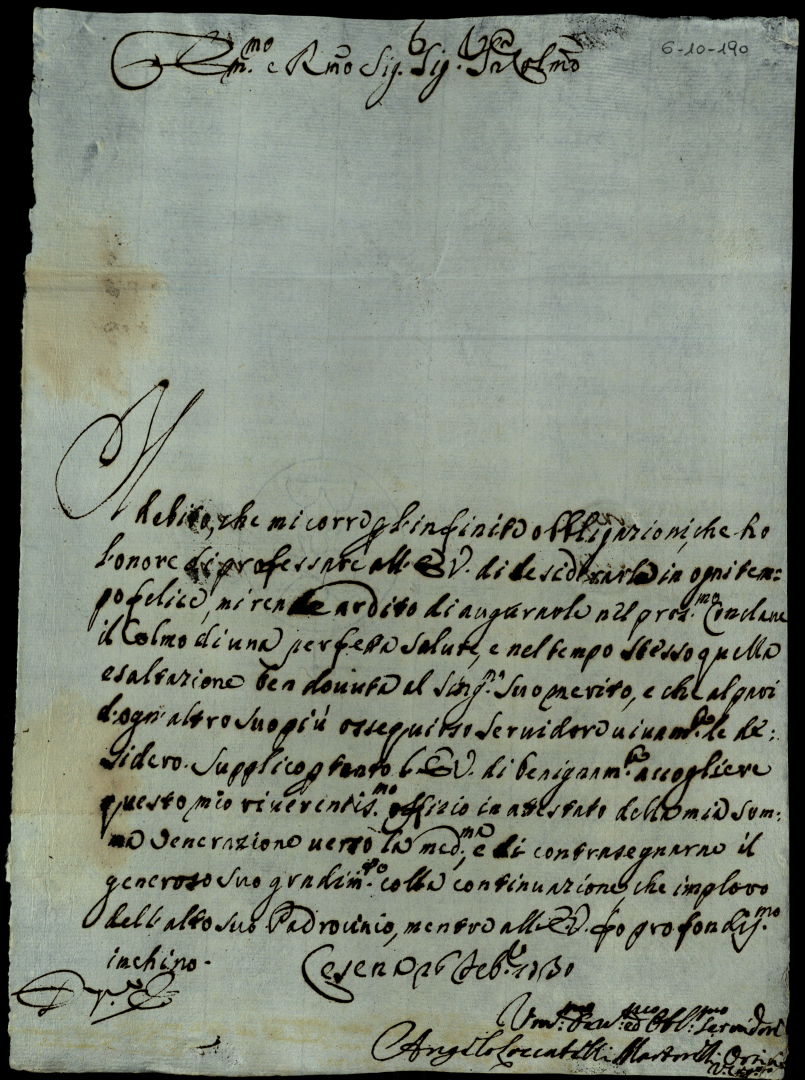 6-10-190
Em.mo e Rmo Sig. Sig. Pron Colmo
Il debito, che mi corre p l'infinite obbligazioni, che ho
l'onore di professare all'E.V. di desiderarla in ogni tem=
po felice, mi rende ardito di augurarle nel pross.mo Conclave
il Colmo di una perfetta salute, e nel tempo stesso quella
esaltazione ben dovuta al sing.re suo merito, e che al pari
d'ogn'altro suo più ossequioso servidore vivam.te le de=
sidero. Supplico p tanto l'E.V. di benignam.te accogliere
questo mio riverentis.mo offizio in attestato della mia som=
ma venerazione verso la med.ma, e di contrasegnarne il
generoso suo gradim.to colla continuazione, che imploro
dell'alto suo Padrocinio, mentre all'E.V. fo profondis.mo
inchino.
Cesena 26 Feb.o 1730
D. V. E.
Um.mo Dev.mo ed Obl.mo Servidore
Angelo Loccatelli Martorelli Orsini